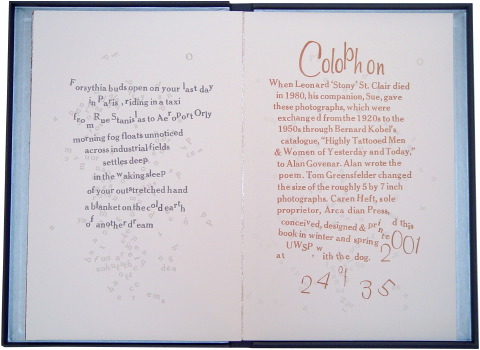 Forsythia buds open on your last day
in Paris, riding in a taxi
from Rue Stanislas to Aeroport Orly
morning fog floats unnoticed
across industrial fields
settles deep.
in the waking sleep
of your outstretched hand
a blanket on the cold earth
of another dream
Colophon
When Leonard "Stony" St. Clair died
in 1980, his companion, Sue, gave
these photographs, which were
exchanged from the 1920s to the
1950s through Bernard Kobel's
catalogue, "Highly Tattooed Men
& Women of Yesterday and Today,"
to Alan Govenar. Alan wrote the
poem. Tom Greensfelder changed
the size of the roughly 5 by 7 inch
photographs. Caren Heft, sole
proprietor, Arcadian Press,
conceived, designed & printed this
book in winter and spring 2001
UWSP w
at ith the dog.
24 of 35